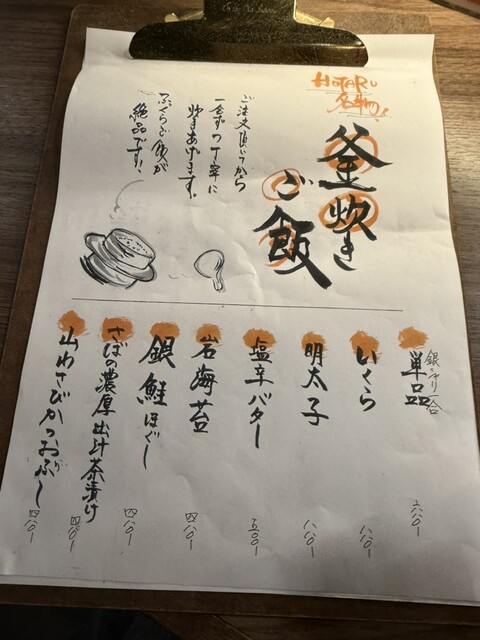 HOTARU
名物!
釜炊き
ご飯
ご注文頂いてから
一合ずつ丁寧に
炊きあげます。
ふっくらご飯が
絶品です。
単品 銀シャリ一合 二八〇-
いくら 八八〇-
明太子 八八〇-
塩辛バター 五〇〇-
岩海苔 四八〇-
銀鮭ほぐし 四八〇-
さばの濃厚出汁茶漬け 四八〇-
山わさびかつおぶし 四八〇-